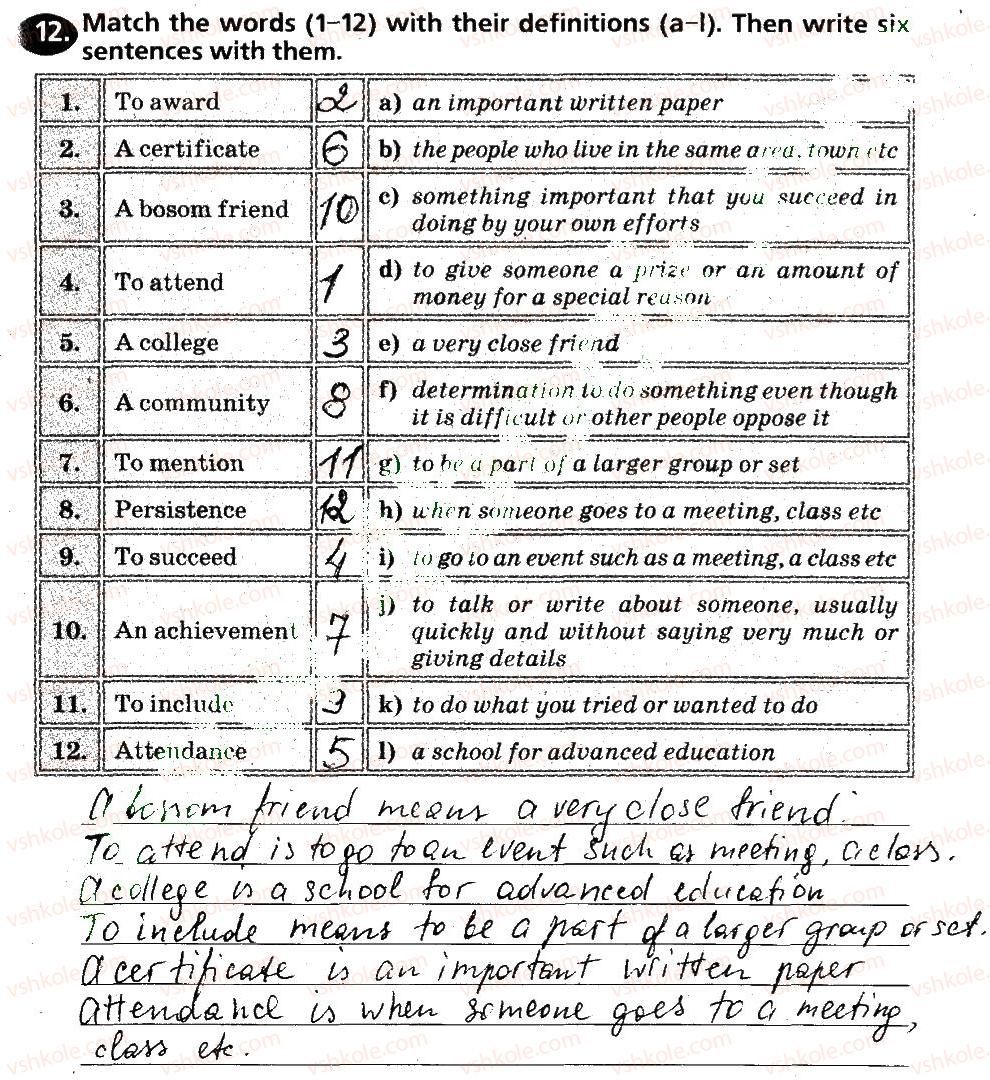 12. Match the words (1–12) with their definitions (a–l). Then write six
sentences with them.
1. To award 2 a) an important written paper
2. A certificate 6 b) the people who live in the same area, town etc
3. A bosom friend 10 c) something important that you succeed in
doing by your own efforts
4. To attend 1 d) to give someone a prize or an amount of
money for a special reason
5. A college 3 e) a very close friend
6. A community 8 f) determination to do something even though
it is difficult or other people oppose it
7. To mention 11 g) to be a part of a larger group or set
8. Persistence 12 h) when someone goes to a meeting, class etc
9. To succeed 4 i) to go to an event such as a meeting, a class etc
10. An achievement 7 j) to talk or write about someone, usually
quickly and without saying very much or
giving details
11. To include 9 k) to do what you tried or wanted to do
12. Attendance 5 l) a school for advanced education
A bosom friend means a very close friend.
To attend is to go to an event such as meeting, a class.
A college is a school for advanced education
To include means to be a part of a larger group or set.
A certificate is an important written paper
Attendance is when someone goes to a meeting,
class etc.